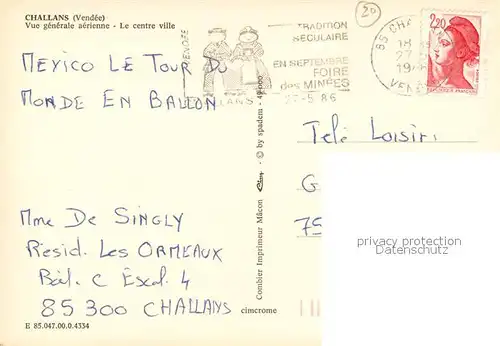 CHALLANS (Vendée)
Vue générale aérienne - Le centre ville
20
MEXICO LE TOUR DU
MONDE EN BALLON
Mme DE SINGLY
Résid. Les ORMEAUX
Bât. C Escal. 4
85 300 CHALLANS
E 85.047.00.0.4334
cimcrome
Combier Imprimeur Mâcon
© by spadem - 49.000
VENDÉE
TRADITION
SECULAIRE
EN SEPTEMBRE
FOIRE
des MINÉES
27-5 86
85 CHA
18
27
19
VEN
2,20
Télé Loisirs
G
75
privacy protection
VEREDAS.COM